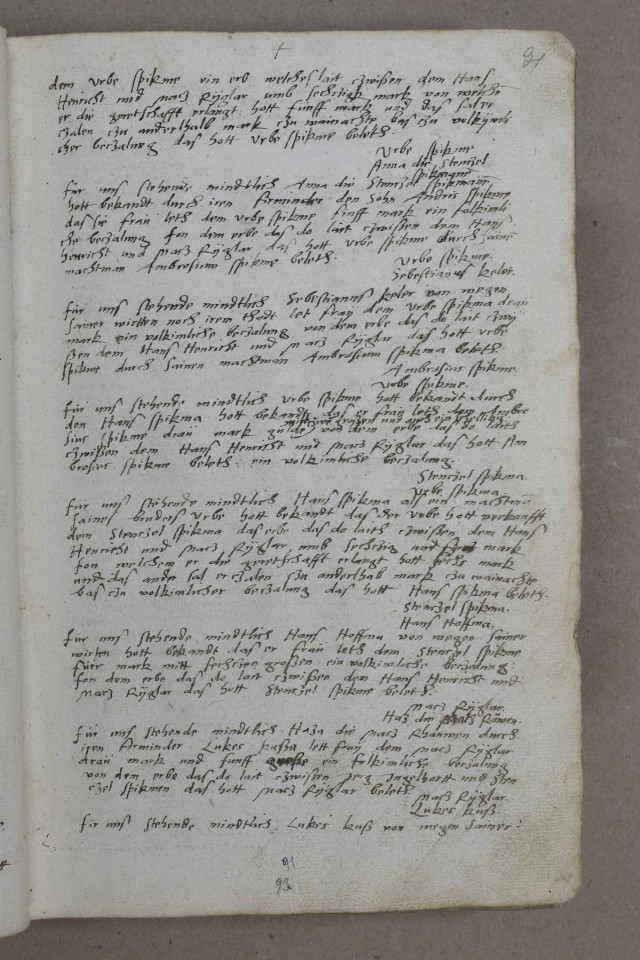 91
dem Urbe spikme ein erb welches lait czwischen dem Hans
Henricht und Marz Rÿglar umb sechczigk mark von welchem
er die gewtschafft erlangt hott funff mark und das
czalen czu anderthalb mark czu wainachte bas czu volkumli
cher beczalung das hott Urbe spikme beleth
Urbe spikme
Anna die Stenczel
spikmanne
für uns stehende mindtlich Anna die Stenczel spikmanne
hott bekandt durch iren formunder den Sohn Andris spikme
das sie fraü leth dem Urbe spikme funff mark ein folkimli
che beczalung fon dem erbe das do lait czwissen dem Hans
Henricht und Marz Rÿglar das hott Urbe spikme durch sainen
machtman Ambrosium spikme beleth.
Urbe spikme.
Sebestianus keler.
für uns stehende mindtlich Sebestianus keler von wegen
sainer wirtten noch irem thodt let fraÿ dem Urbe spikma draü
mark ein volkimliche beczalung von dem erbe das do lait czwi
ssen dem Hans Henricht und Marz Rÿglar das hott Urbe
spikme durch sainen machtman Ambrosium spikma beleth.
Ambrosius spikme
Urbe spikme.
für uns stehende mindtlich Urbe spikme hott bekandt durch
den Hans spikma hott bekandt das er fraÿ leth dem Ambro
sius spikme draü mark von dem erbe das do laith
czwissen dem Hans Henricht und Marz Rÿglar das hott Am
brosius spikman beleth ein volkimliche beczalung.
Stenczel spikma.
Urbe spikma
für uns stehende mindtlich Hans spikma als ein machtman
saines bruders Urbe hott bekandt das der Urbe hott vorkaufft
dem Stenczel spikma das erbe das do laith czwissen dem Hans
Henricht und Marz Rÿglar umb sechczig und mark
fon welchem er die gewtschafft erlangt hott sechs mark
und das ander sal er czalen czu anderthab mark czu wainachte
bas czu volkimlicher beczalung das hott Hans spikma beleth.
Stenczel spikma.
Hans Hoffma.
für uns stehende mindtlich Hans Hoffma von wegen sainer
wirten hott bekandt das er fraÿ leth dem Stenczel spikme
fuer mark mitt sechczien groschen ein volkimliche beczalung
fon dem erbe das do lait czwissen dem Hans Henricht und
Marz Rÿglar das hott Stenczel spikme beleth.
Marz Rÿglar.
Haza die Marz
für uns stehende mindtlich Haza die Marz durch
iren formunder Lukes kusza lett fraÿ dem Marz Rÿglar
draü mark und funff grosse ein folkimliche beczalung
von dem erbe das do lait czwissen Jerz und Sten
czel spikmen das hott Marz Rÿglar beleth
Marz Rÿglar.
Lukes kusz.
für uns stehende mindtlich Lukes kusz von wegen sainer
91
93